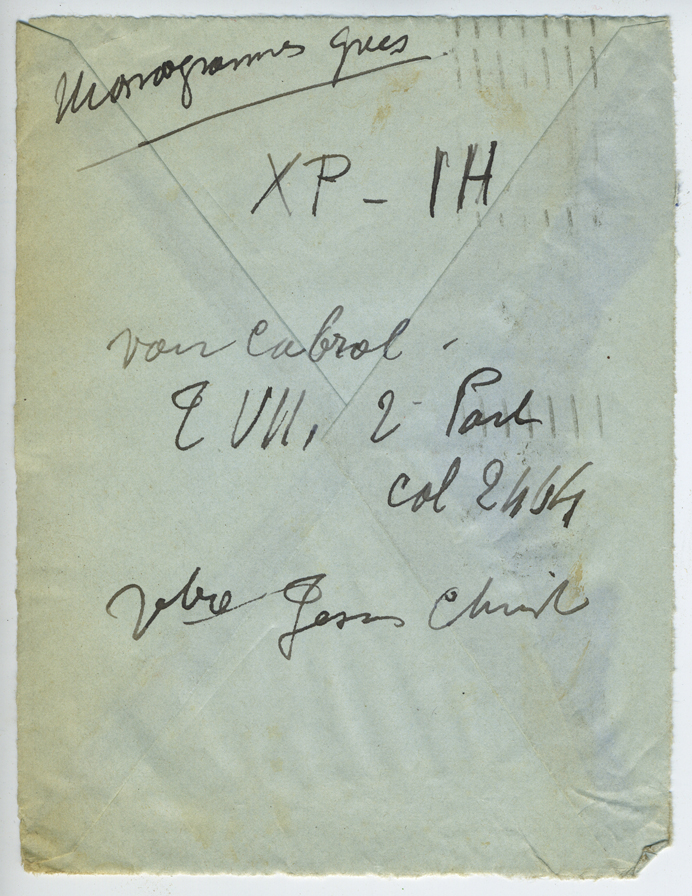 Monogrammes grecs
XP - IH
voir Cabrol -
T VII, 2e Part
col 2464
Jesus Christ